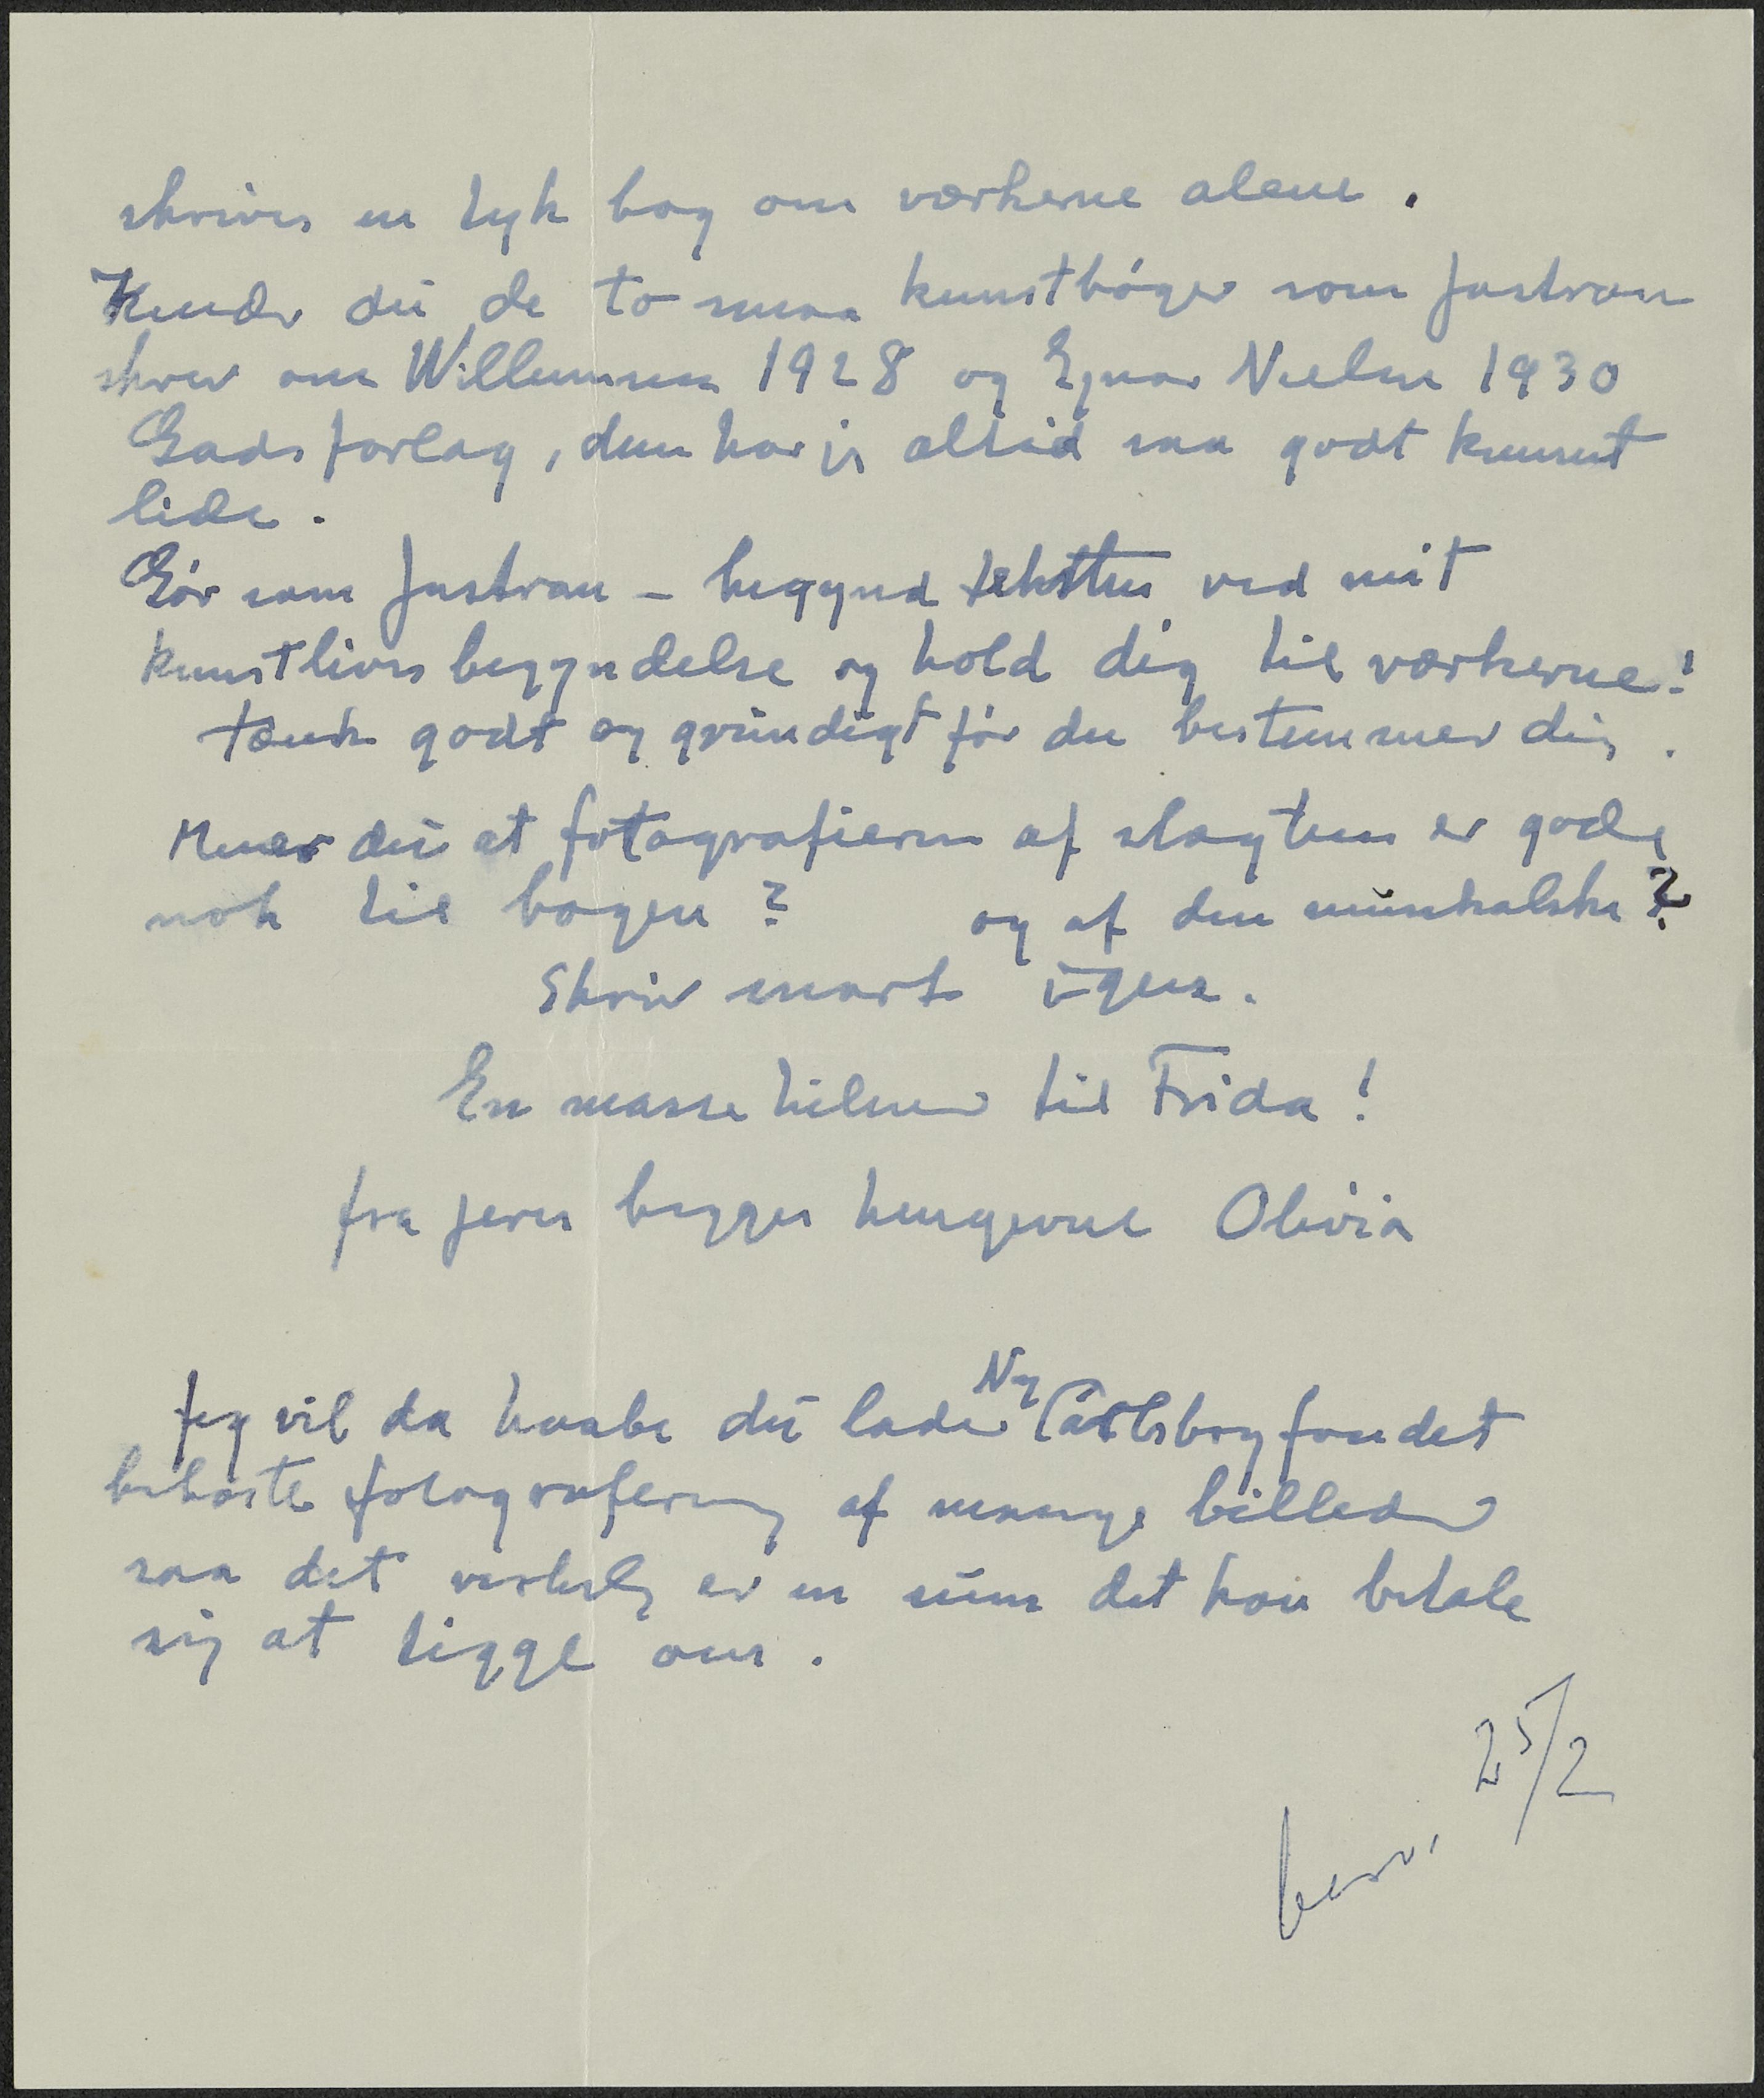 skrives en tyk bog om værkerne alene.
Kender du de to smaa kunstbøger som Jastrau
skrev om Willumsen 1928 og Ejnar Nielsen 1930
Gads forlag, dem har jeg altid saa godt kunnet
lide.
Gör som Jastrau – begynd teksten ved mit
kunstlivs begyndelse og hold dig til værkerne!
tænk godt og grundigt før du bestemmer dig.
Mener du at fotografierne af slægten er gode
nok til bogen? og af den musikalske?
Skriv snart igen.
En masse hilsner til Frida!
fra jeres begges hengivne Olivia
Jeg vil da haabe du lader Ny Carlsbergfondet
bekoste fotografering af mange billeder
saa det virkelig er en sum det kan betale
sig at tigge om.
25/2
besv.